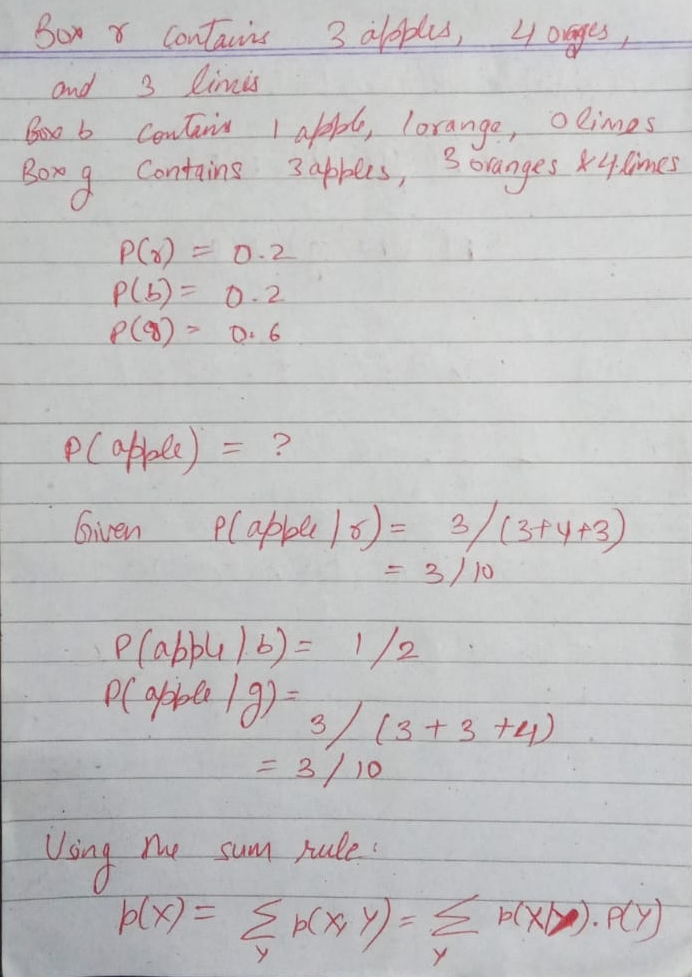 Box r contains 3 apples, 4 orages,
and 3 limes
Box b contains 1 apple, 1 orange, 0 limes
Box g contains 3 apples, 3 oranges & 4 limes
P(r) = 0.2
P(b) = 0.2
P(g) = 0.6
P(apple) = ?
Given P(apple / r) = 3/(3+4+3)
= 3/10
P(apple / b) = 1/2
P(apple / g) =
3/(3+3+4)
= 3/10
Using the sum rule:
p(X) = Σ_Y p(X, Y) = Σ_Y p(X/Y). P(Y)